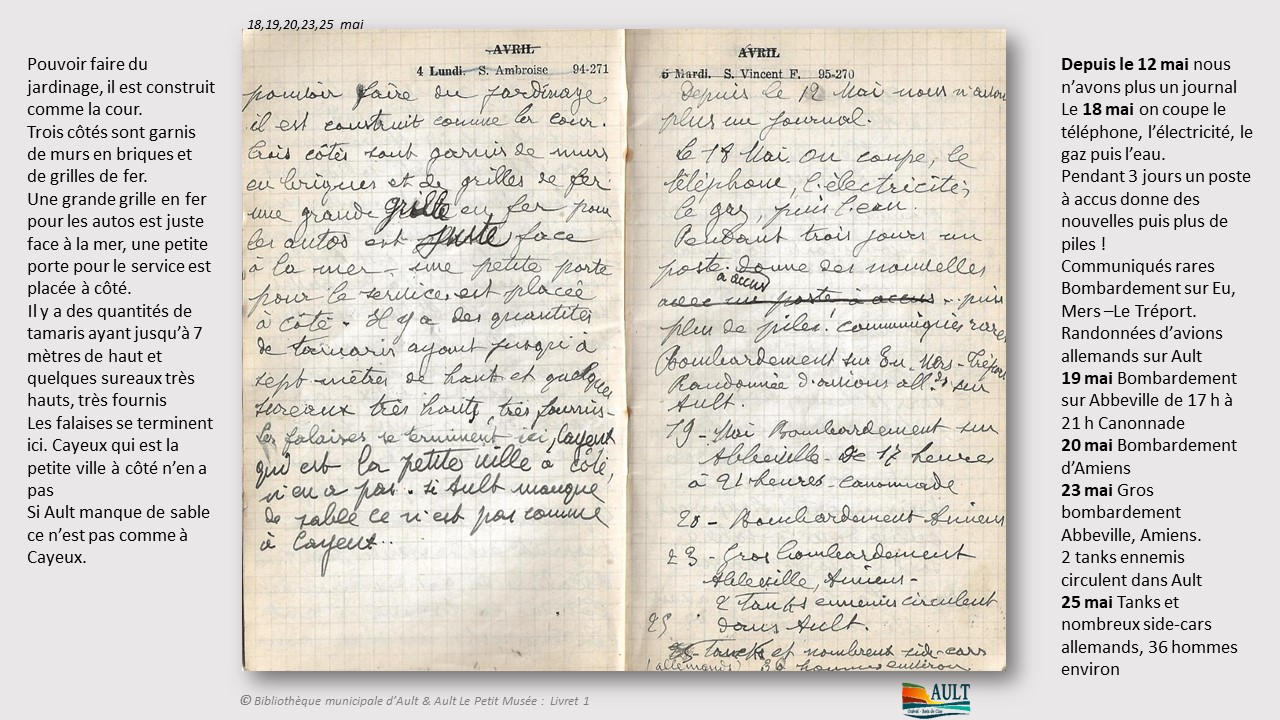 18,19,20,23,25 mai
Pouvoir faire du
jardinage, il est construit
comme la cour.
Trois côtés sont garnis
de murs en briques et
de grilles de fer.
Une grande grille en fer
pour les autos est juste
face à la mer, une petite
porte pour le service est
placée à côté.
Il y a des quantités de
tamaris ayant jusqu’à 7
mètres de haut et
quelques sureaux très
hauts, très fournis
Les falaises se terminent
ici. Cayeux qui est la
petite ville à côté n’en a
pas
Si Ault manque de sable
ce n’est pas comme à
Cayeux.
AVRIL
4 Lundi. S. Ambroise 94-271
pouvoir faire du jardinage,
il est construit comme la cour.
Trois côtés sont garnis de murs
en briques et de grilles de fer
une grande grille en fer pour
les autos est juste face
à la mer - une petite porte
pour le service est placée
à côté. Il y a des quantités
de tamaris ayant jusqu'à
sept mètres de haut et quelques
sureaux très hauts, très fournis-
les falaises se terminent ici, Cayeux
qui est la petite ville à côté,
n'en a pas. Si Ault manque
de sable ce n'est pas comme
à Cayeux..
AVRIL
5 Mardi. S. Vincent F. 95-270
Depuis le 12 Mai nous n'avons
plus un journal.
Le 18 Mai. On coupe, le
téléphone, l'électricité,
le gaz, puis l'eau.
Pendant trois jours un
poste donne des nouvelles
à accus
avec un poste à accus - puis
plus de piles! Communiqués rares
Bombardement sur Eu, Mers-Tréport
Randonnée d'avions all.ds sur
Ault.
19 - Mai Bombardement sur
Abbeville - de 17 heures
à 21 heures - Canonnade
20 - Bombardement Amiens
23 - Gros bombardement
Abbeville, Amiens -
2 Tanks ennemis circulent
dans Ault.
25
Tanks et nombreux side-cars
(allemands) 36 hommes environ
Depuis le 12 mai nous
n’avons plus un journal
Le 18 mai on coupe le
téléphone, l’électricité, le
gaz puis l’eau.
Pendant 3 jours un poste
à accus donne des
nouvelles puis plus de
piles !
Communiqués rares
Bombardement sur Eu,
Mers –Le Tréport.
Randonnées d’avions
allemands sur Ault
19 mai Bombardement
sur Abbeville de 17 h à
21 h Canonnade
20 mai Bombardement
d’Amiens
23 mai Gros
bombardement
Abbeville, Amiens.
2 tanks ennemis
circulent dans Ault
25 mai Tanks et
nombreux side-cars
allemands, 36 hommes
environ
© Bibliothèque municipale d’Ault & Ault Le Petit Musée : Livret 1
AULT